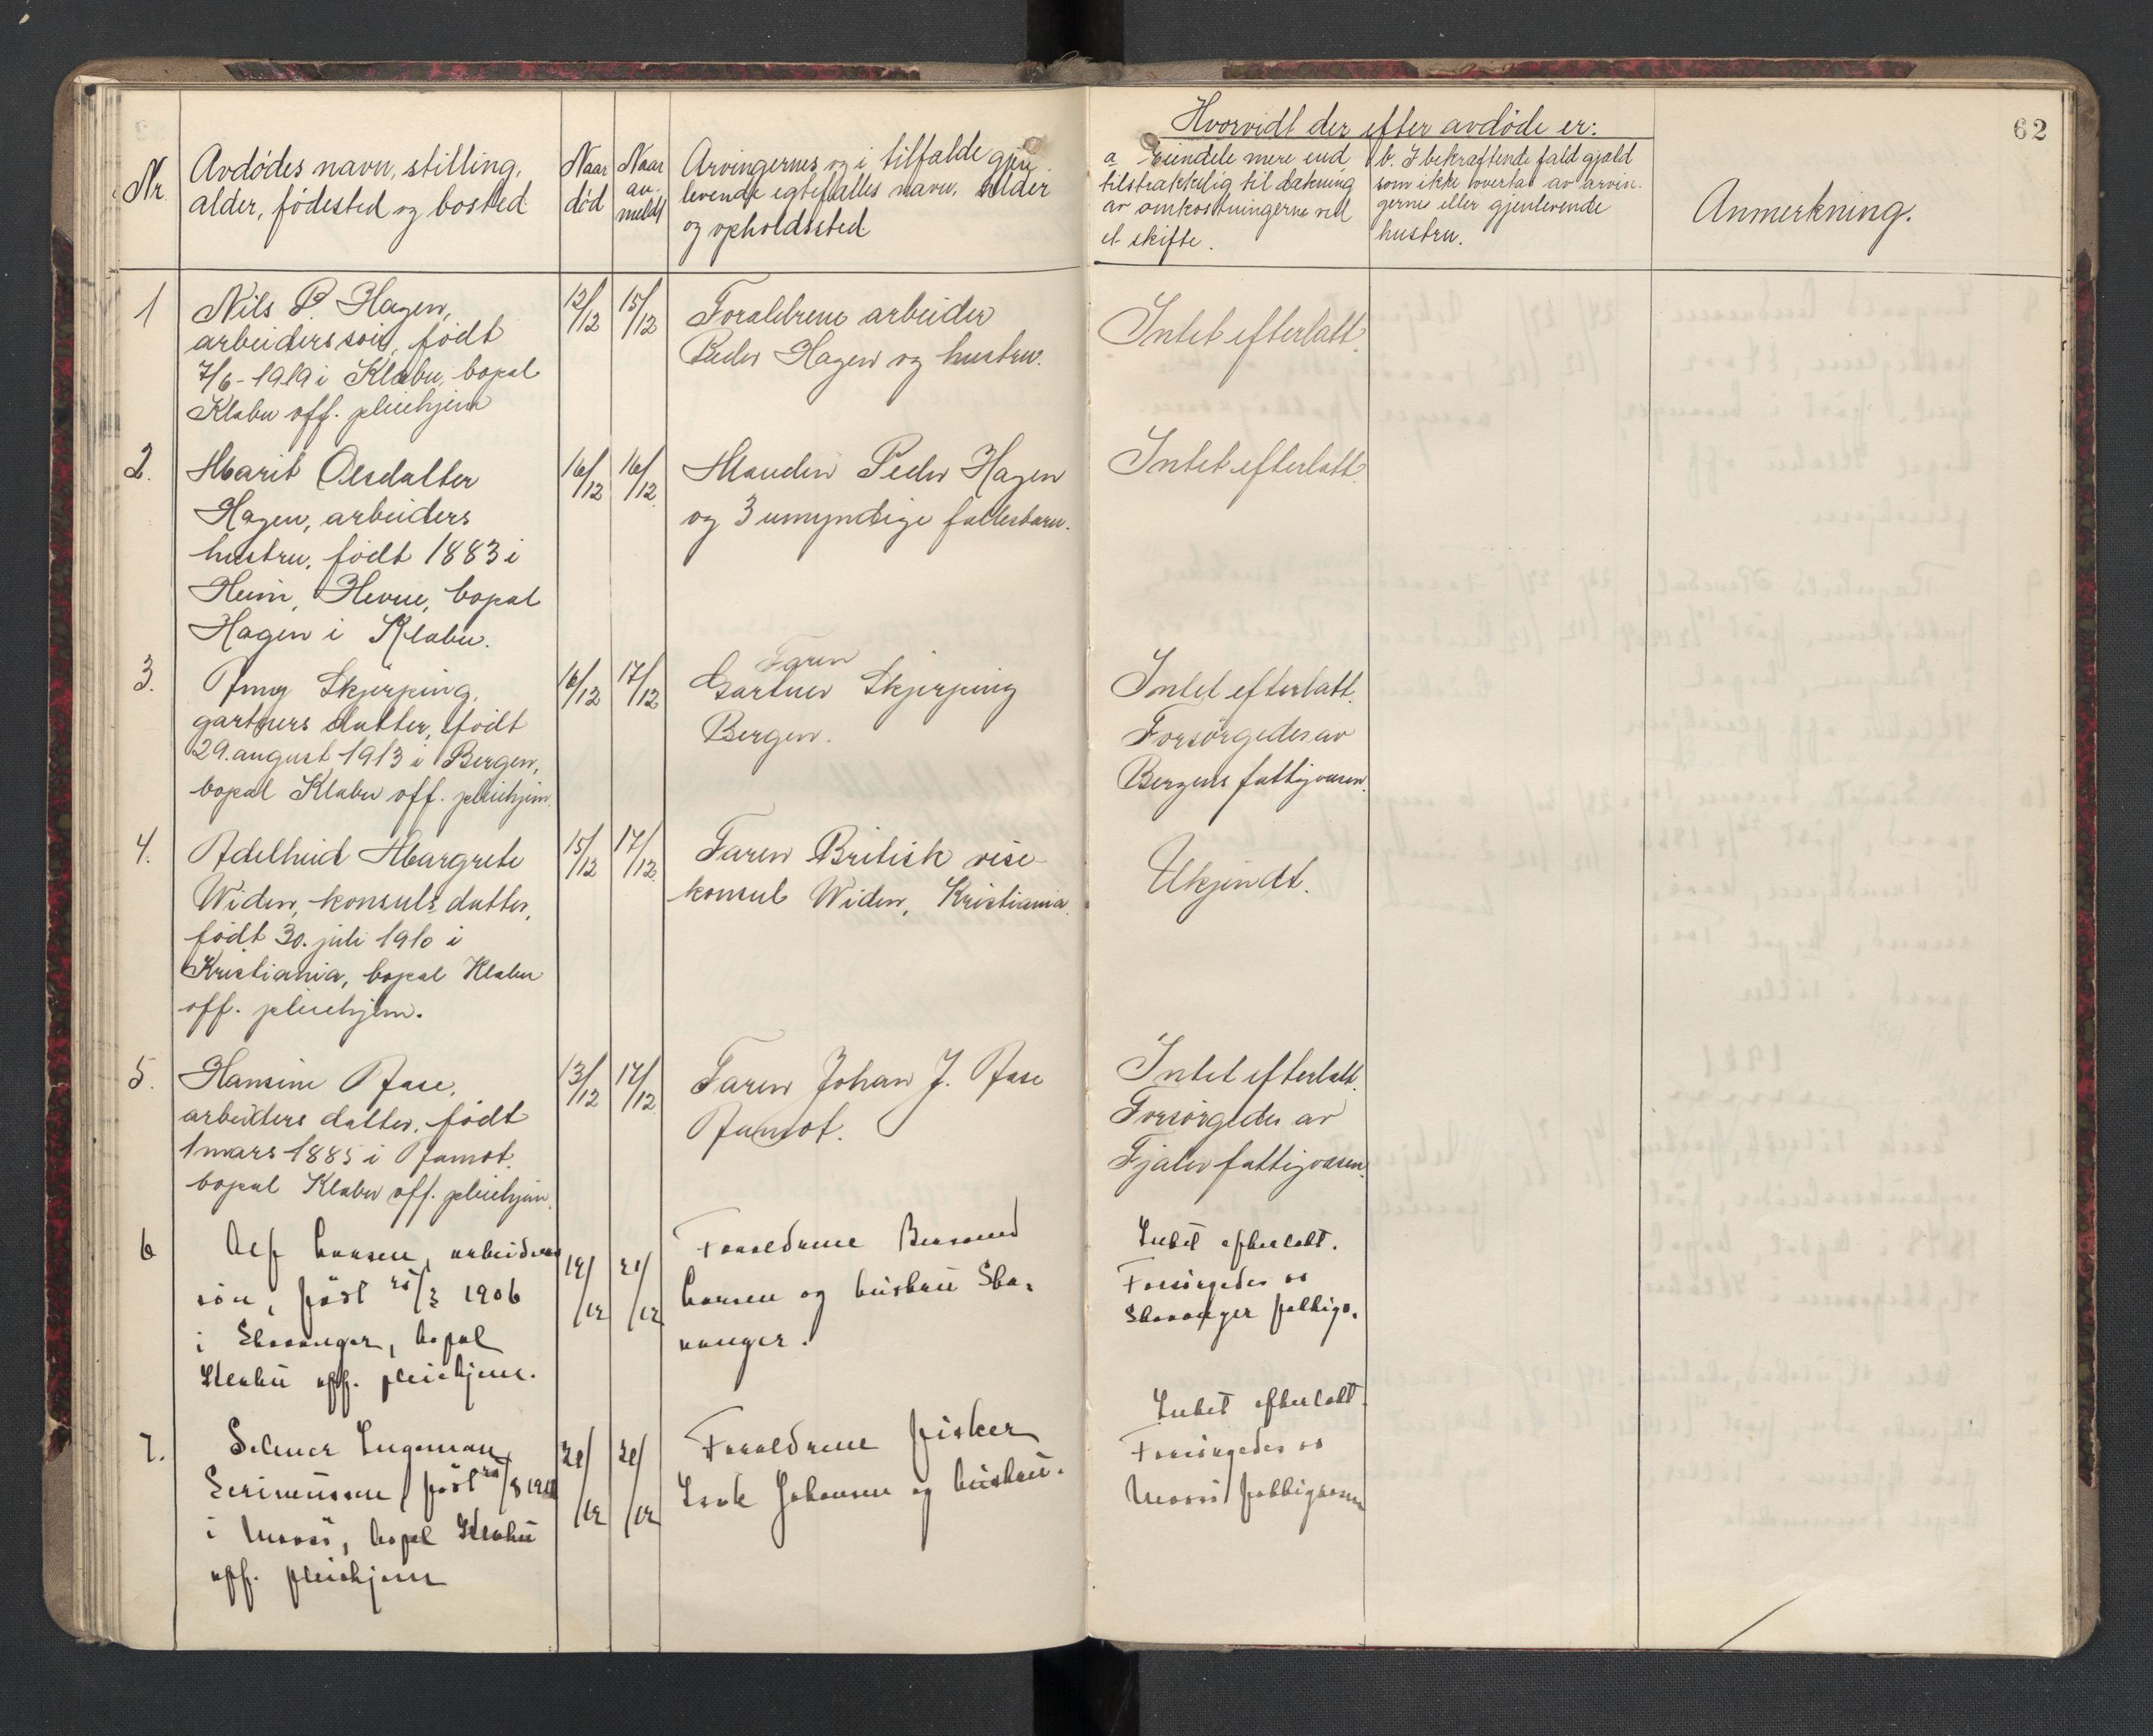 62
Hvorvidt der efter avdöde er:
Nr.
Avdödes navn, stilling,
alder, födested og bosted
Naar
död
Naar
an-
meldt
Arvingernes og i tilfælde gjen-
levende egtefælles navn, alder
og opholdssted
a Eiendele mere end
tilstrækkelig til dækning
av omkostningerne ved
et skifte.
b. I bekræftende fald gjæld
som ikke overtas av arvin-
gernes eller gjenlevende
hustru.
Anmerkning.
1
Nils P. Hagen,
arbeiders sön, födt
7/6-1919 i Klæbu, bopæl
Klæbu off. pleiehjem
12/12
15/12
Forældrene arbeider
Peder Hagen og hustru.
Intet efterlatt.
2.
Marit Olsdatter
Hagen, arbeiders
hustru, födt 1883 i
Heim, Hevne, bopæl
Hagen i Klæbu.
16/12
16/12
Manden Peder Hagen
og 3 umyndige fællesbarn.
Intet efterlatt.
3.
Skjerping,
gartners datter, födt
29. august 1913 i Bergen,
bopæl Klæbu off. pleiehjem.
16/12
17/12
Faren
Gartner Skjerping
Bergen.
Intet efterlatt.
Forsörgedes av
Bergens fattigvæsen.
4.
Adelheid Margrete
Widen, konsuls datter,
födt 30. juli 1910 i
Kristiania, bopæl Klæbu
off. pleiehjem.
15/12
17/12
Faren Britisk vise-
konsul Widen, Kristiania.
Ukjendt.
5.
Hansine Aase,
arbeiders datter, födt
1 mars 1885 i
bopæl Klæbu off. pleiehjem.
13/12
17/12
Faren Johan J. Aase
Intet efterlatt.
Forsörgedes av
Fjaler fattigvæsen.
6
Alf Larsen, arbeiders
sön, födt 25/3 1906
i Stavanger, bopæl
Klæbu off. pleiehjem.
19/12
21/12
Forældrene
Larsen og hustru Sta-
vanger.
Intet efterlatt.
Forsörgedes av
Stavanger fattigv.
7.
Selmer Ingeman
födt
i bopæl Klæbu
off. pleiehjem
21/12
21/12
Forældrene fisker
Isak Johansen og hustru.
Intet efterlatt.
Forsörgedes av
fattigvæsen